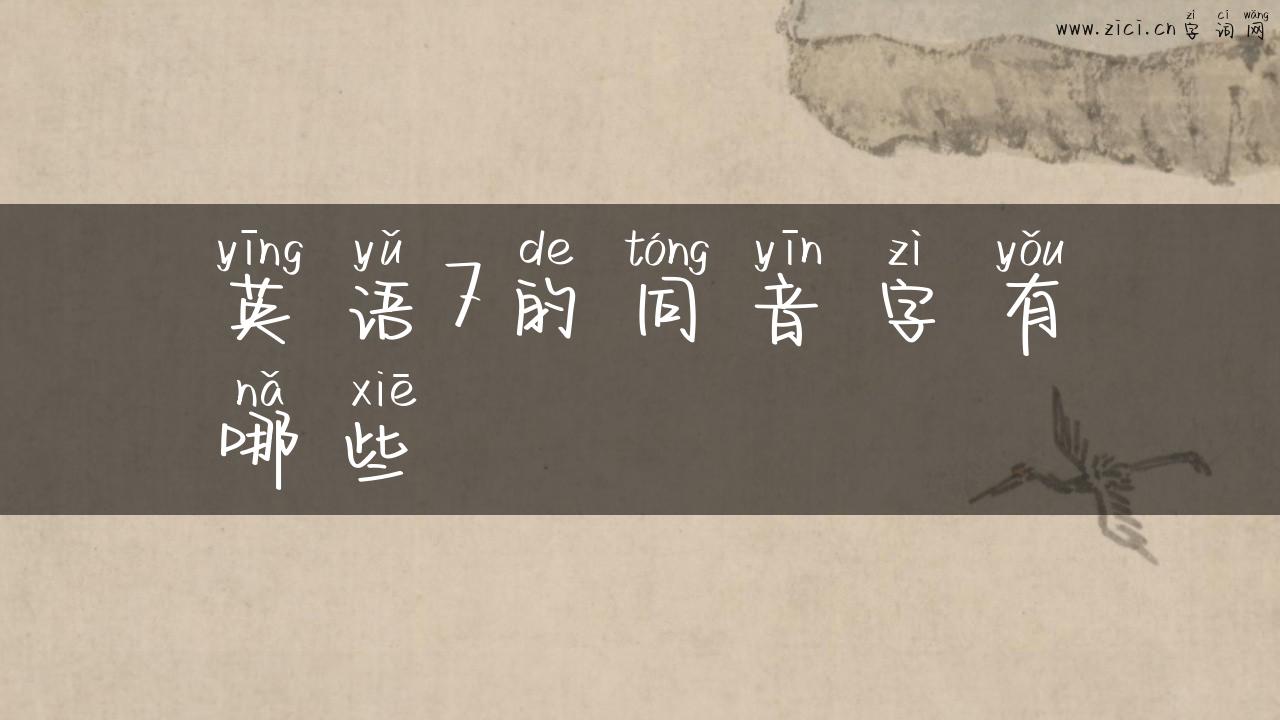 zì cí wǎng
www.zici.cn 字词网
yīng yǔ de tóng yīn zì yǒu
英语7的同音字有
nǎ xiē
哪些